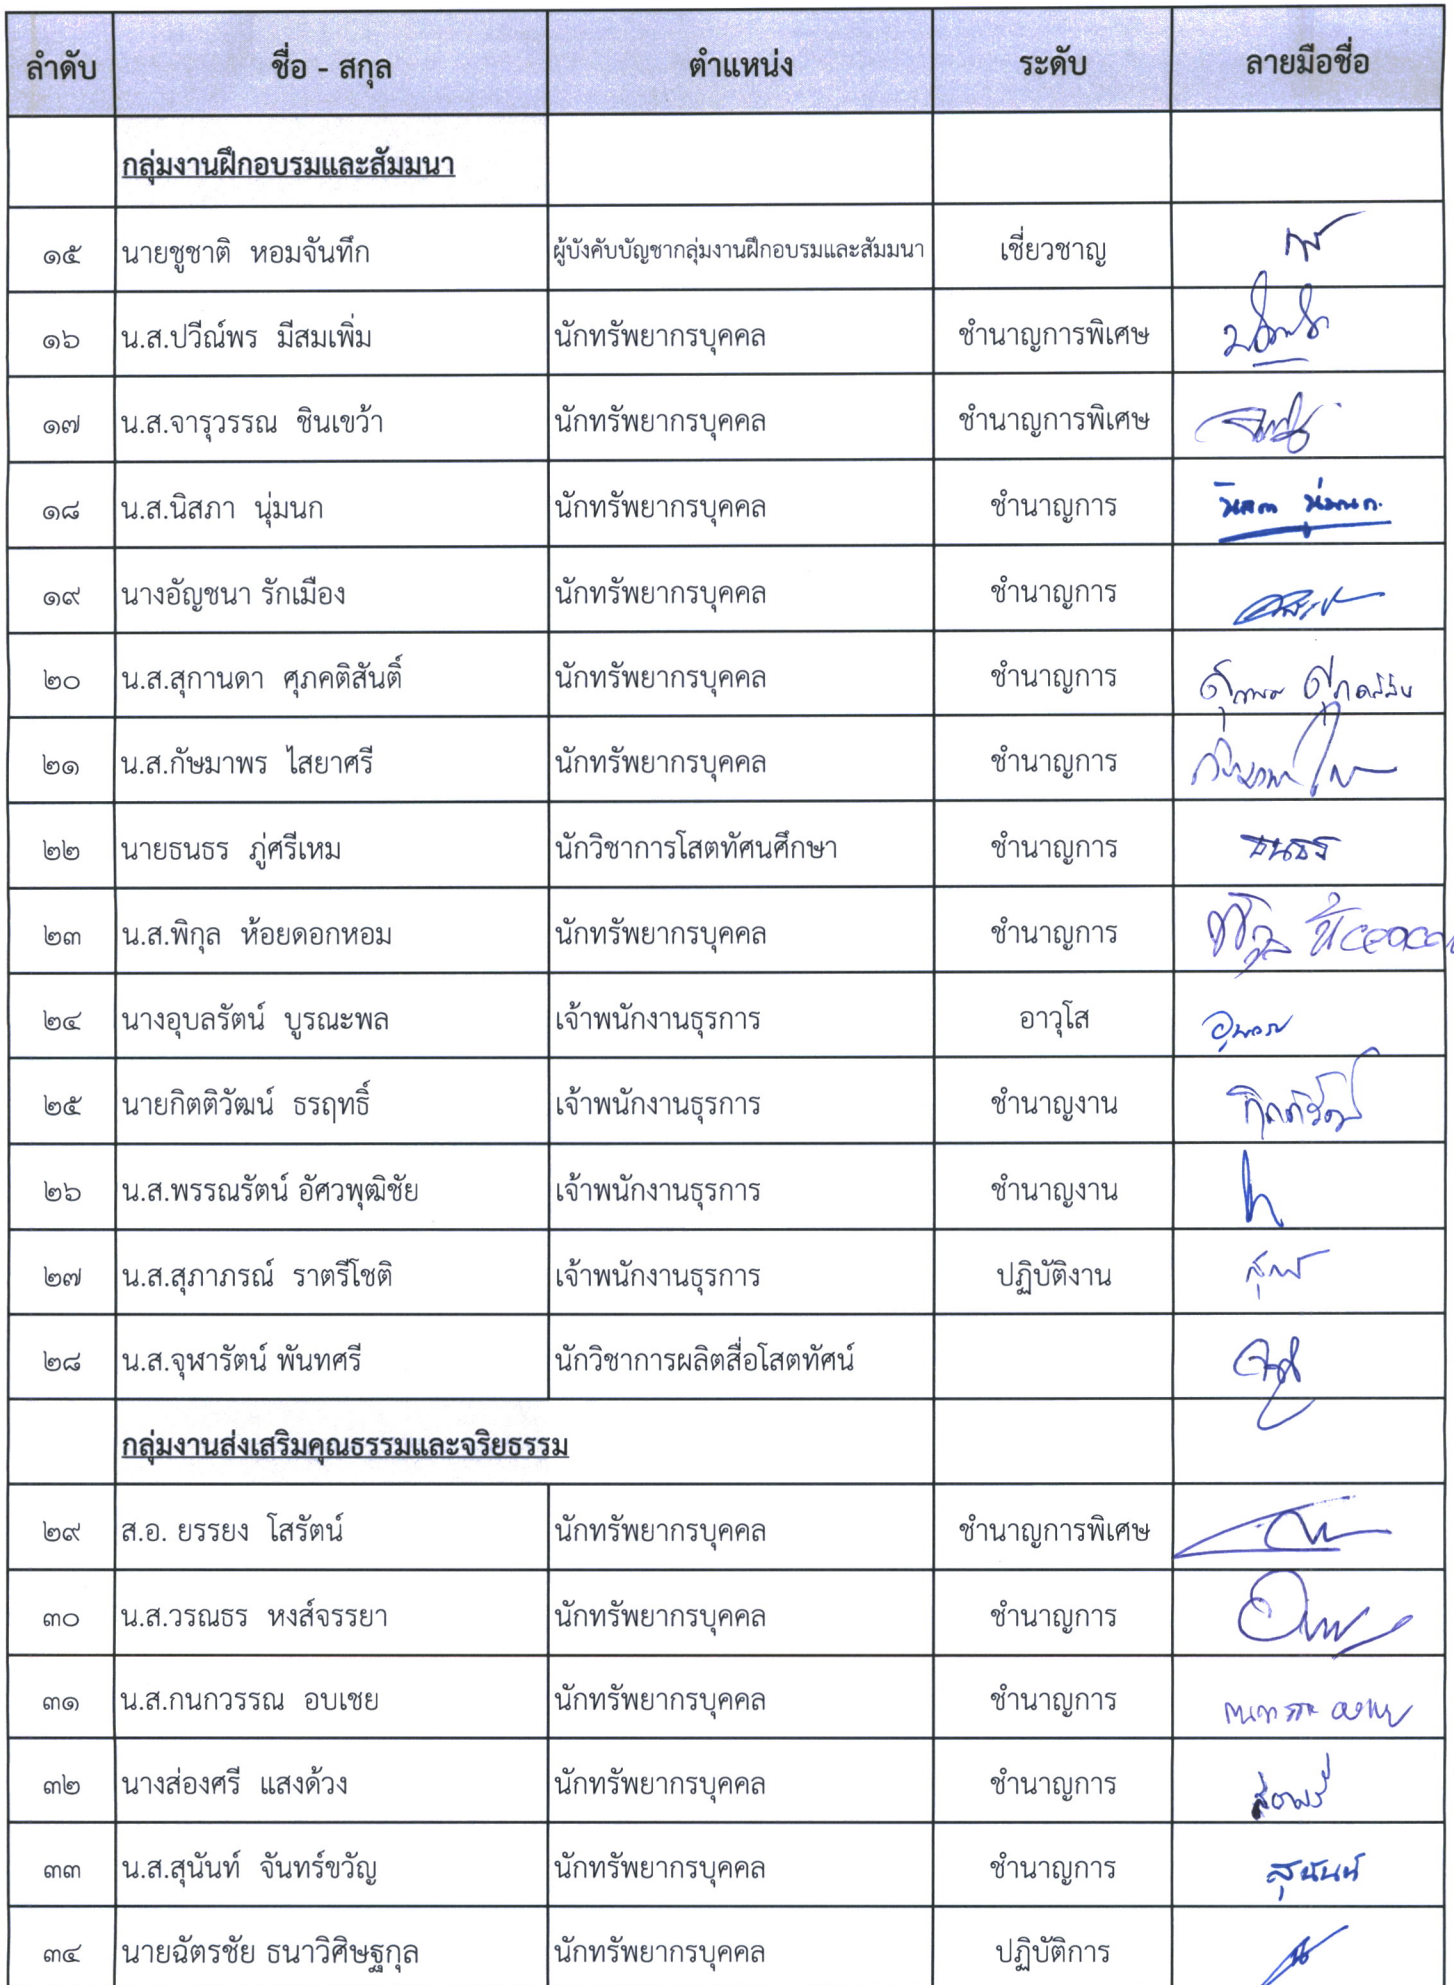 ลำดับ ชื่อ - สกุล ตำแหน่ง ระดับ ลายมือชื่อ
กลุ่มงานฝึกอบรมและสัมมนา
๑๕ นายชูชาติ หอมจันทึก ผู้บังคับบัญชากลุ่มงานฝึกอบรมและสัมมนา เชี่ยวชาญ
๑๖ น.ส.ปวีณ์พร มีสมเพิ่ม นักทรัพยากรบุคคล ชำนาญการพิเศษ
๑๗ น.ส.จารุวรรณ ชินเขว้า นักทรัพยากรบุคคล ชำนาญการพิเศษ
๑๘ น.ส.นิสภา นุ่มนก นักทรัพยากรบุคคล ชำนาญการ นิสภา นุ่มนก
๑๙ นางอัญชนา รักเมือง นักทรัพยากรบุคคล ชำนาญการ
๒๐ น.ส.สุกานดา ศุภคติสันติ์ นักทรัพยากรบุคคล ชำนาญการ
๒๑ น.ส.กัษมาพร ไสยาศรี นักทรัพยากรบุคคล ชำนาญการ
๒๒ นายธนธร ภู่ศรีเหม นักวิชาการโสตทัศนศึกษา ชำนาญการ ธนธร
๒๓ น.ส.พิกุล ห้อยดอกหอม นักทรัพยากรบุคคล ชำนาญการ
๒๔ นางอุบลรัตน์ บูรณะพล เจ้าพนักงานธุรการ อาวุโส
๒๕ นายกิตติวัฒน์ ธรฤทธิ์ เจ้าพนักงานธุรการ ชำนาญงาน
๒๖ น.ส.พรรณรัตน์ อัศวพุฒิชัย เจ้าพนักงานธุรการ ชำนาญงาน
๒๗ น.ส.สุภาภรณ์ ราตรีโชติ เจ้าพนักงานธุรการ ปฏิบัติงาน
๒๘ น.ส.จุฬารัตน์ พันทศรี นักวิชาการผลิตสื่อโสตทัศน์
กลุ่มงานส่งเสริมคุณธรรมและจริยธรรม
๒๙ ส.อ. ยรรยง โสรัตน์ นักทรัพยากรบุคคล ชำนาญการพิเศษ
๓๐ น.ส.วรณธร หงส์จรรยา นักทรัพยากรบุคคล ชำนาญการ
๓๑ น.ส.กนกวรรณ อบเชย นักทรัพยากรบุคคล ชำนาญการ
๓๒ นางส่องศรี แสงด้วง นักทรัพยากรบุคคล ชำนาญการ
๓๓ น.ส.สุนันท์ จันทร์ขวัญ นักทรัพยากรบุคคล ชำนาญการ สุนันท์
๓๔ นายฉัตรชัย ธนาวิศิษฐกุล นักทรัพยากรบุคคล ปฏิบัติการ